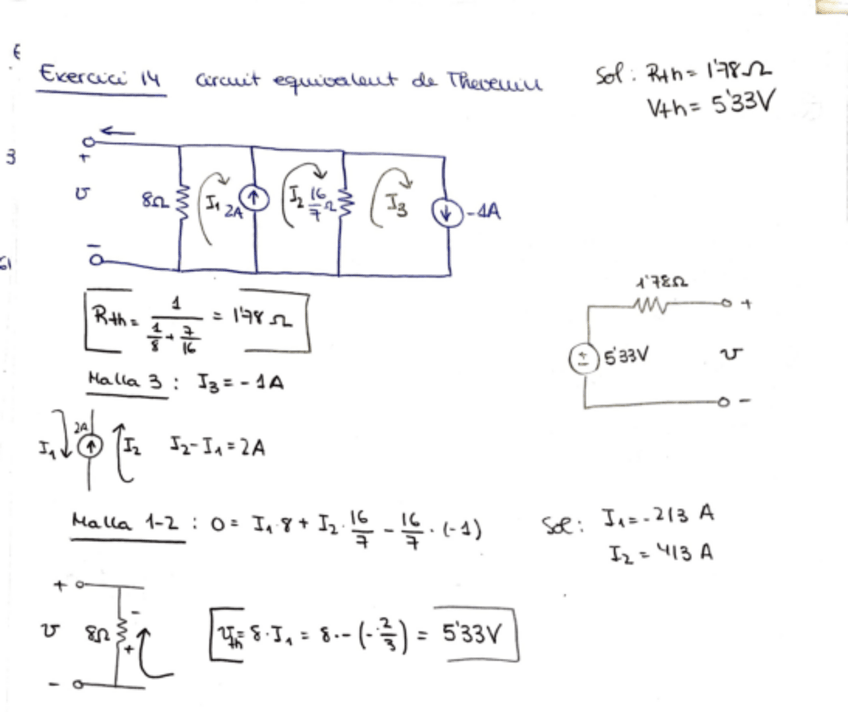 Exercici 14 circuit equivalent de Thevenin
Sol: Rth = 1'78 Ω
Vth = 5'33V
3
+
v
-
8Ω
I1
2A
I2
16/7 Ω
I3
-1A
61
Rth = 1/(1/8 + 7/16) = 1'78 Ω
1'78Ω
+
5'33V
v
-
Malla 3 : I3 = -1A
I1
2A
I2
I2 - I1 = 2A
Malla 1-2 : 0 = I1·8 + I2·16/7 - 16/7·(-1)
Sol: I1 = -2/3 A
I2 = 4/3 A
+
v
-
8Ω
-
+
Vth = 8·I1 = 8·-(-2/3) = 5'33V